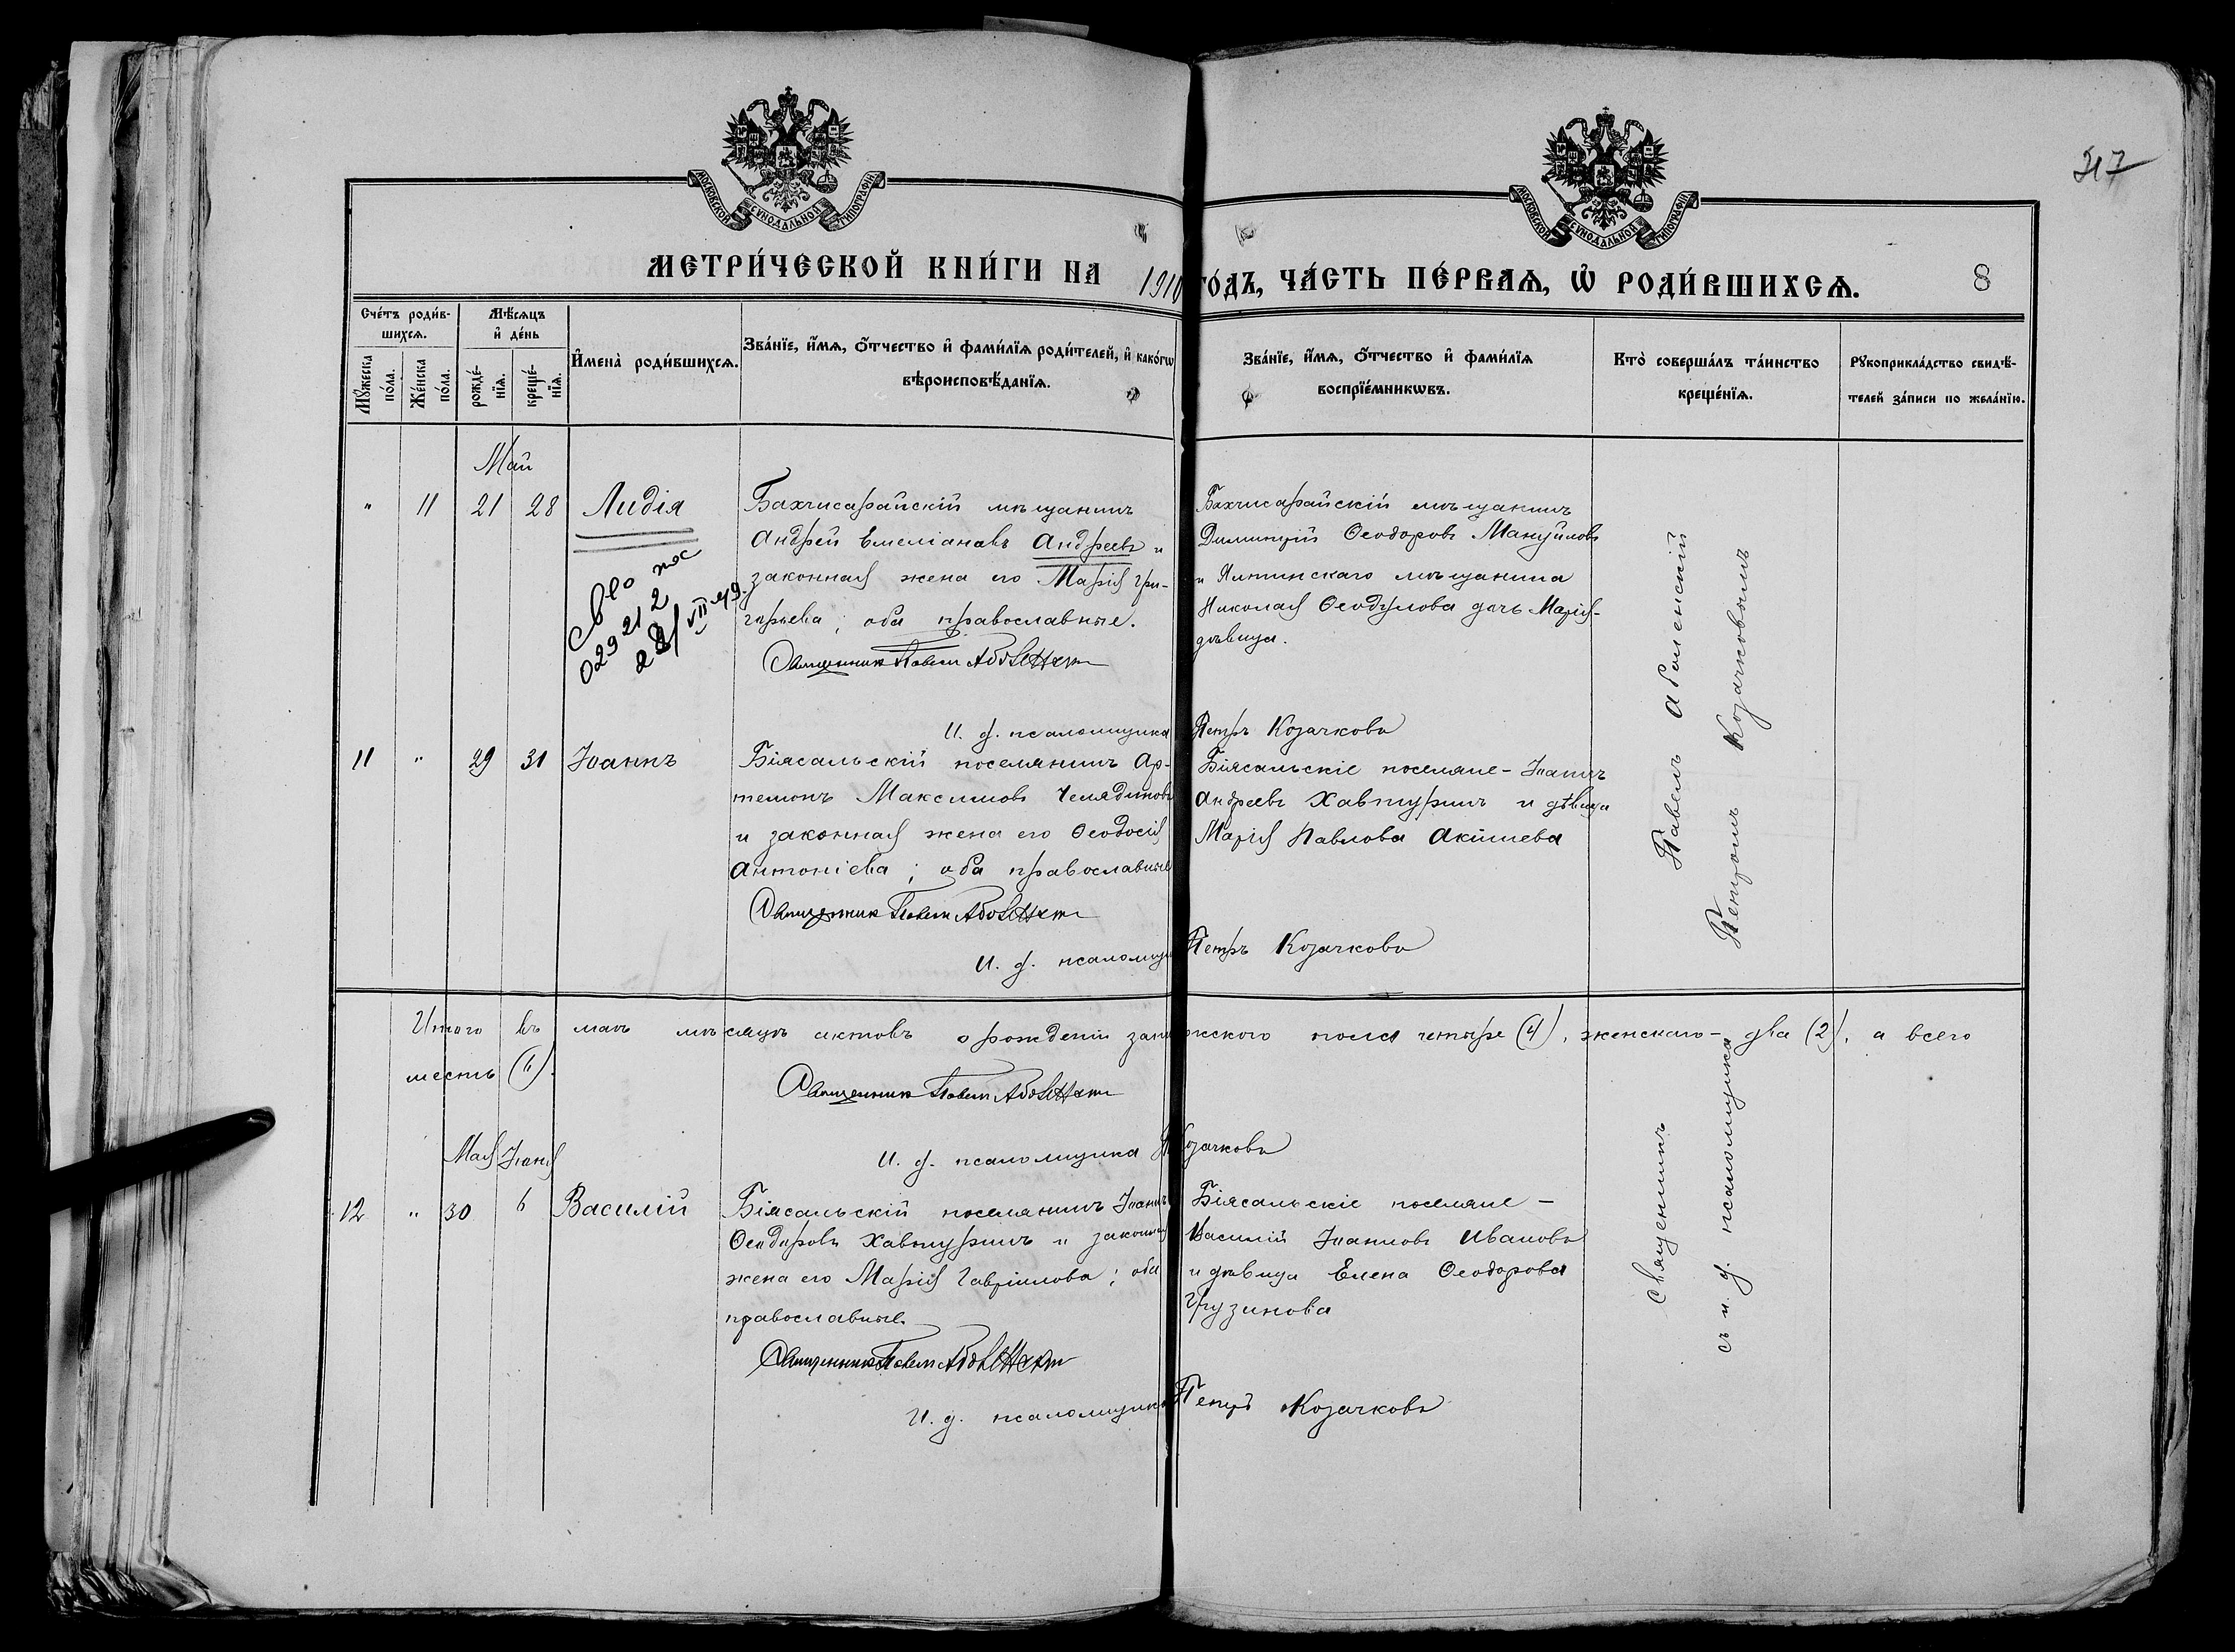 247
МОСКОВСКОЙ СѴНОДАЛЬНОЙ ТИПОГРАФІИ
МОСКОВСКОЙ СѴНОДАЛЬНОЙ ТИПОГРАФІИ
МЕТРИ́ЧЕСКОЙ КНИ́ГИ НА 1910 ГО́ДЪ, ЧА́СТЬ ПЕ́РВАѦ, Ѡ҆ РОДИ́ВШИХСѦ. 8
Сче́тъ роди́в-
шихсѧ.
Мꙋ́жеска по́ла.
Же́нска по́ла.
Мѣ́сѧцъ
и҆ де́нь
рожде́-
нїѧ.
креще́-
нїѧ.
И҆мена̀ роди́вшихсѧ.
Зва́нїе, и҆́мѧ, ѻ҆́тчество и҆ фами́лїѧ роди́телей, и҆ како́гѡ
вѣроисповѣ́данїѧ.
Зва́нїе, и҆́мѧ, ѻ҆́тчество и҆ фами́лїѧ
воспрїе́мникѡвъ.
Кто̀ соверша́лъ та́инство
креще́нїѧ.
Рꙋкоприкла́дство свидѣ́-
телей за́писи по жела́нїю.
Май
" 11 21 28 Лидія
Бахчисарайскій мѣщанинъ
Андрей Емеліановъ Андреевъ и
законная жена его Марія Гри-
горьева; оба православные.
Священникъ Павелъ
Бахчисарайскій мѣщанинъ
Димитрій Ѳеодоровъ Мануйловъ
и Ялтинскаго мѣщанина
Николая Ѳеодулова дочь Марія-
дѣвица.
029212
И. д. псаломщика Петръ Козачковъ
11 " 29 31 Іоаннъ
Біясальскій поселянинъ Ар-
темонъ Максимовъ Челядиновъ
и законная жена его Ѳеодосія
Антоніева; оба православные
Священникъ Павелъ
Біясальскіе поселяне - Іоаннъ
Андреевъ Хавтуринъ и дѣвица
Марія Павлова Акишева
И. д. псаломщ Петръ Козачковъ
Священникъ Павелъ
съ и. д. псаломщика Петромъ Козачковымъ
Итого въ маѣ мѣсяцѣ актовъ о рожденіи жского пола четыре (4), женскаго - два (2), а всего
шесть (6).
Священникъ Павелъ
И. д. псаломщика П Козачковъ
Мая Іюня
12 " 30 6 Василій
Біясальскій поселянинъ Іоаннъ
Ѳеодоровъ Хавтуринъ и законная
жена его Марія Гавріилова; оба
православные.
Священникъ Павелъ
Біясальскіе поселяне -
Василій Іоанновъ Ивановъ
и дѣвица Елена Ѳеодорова
Грузинова
И. д. псаломщика Петръ Козачковъ